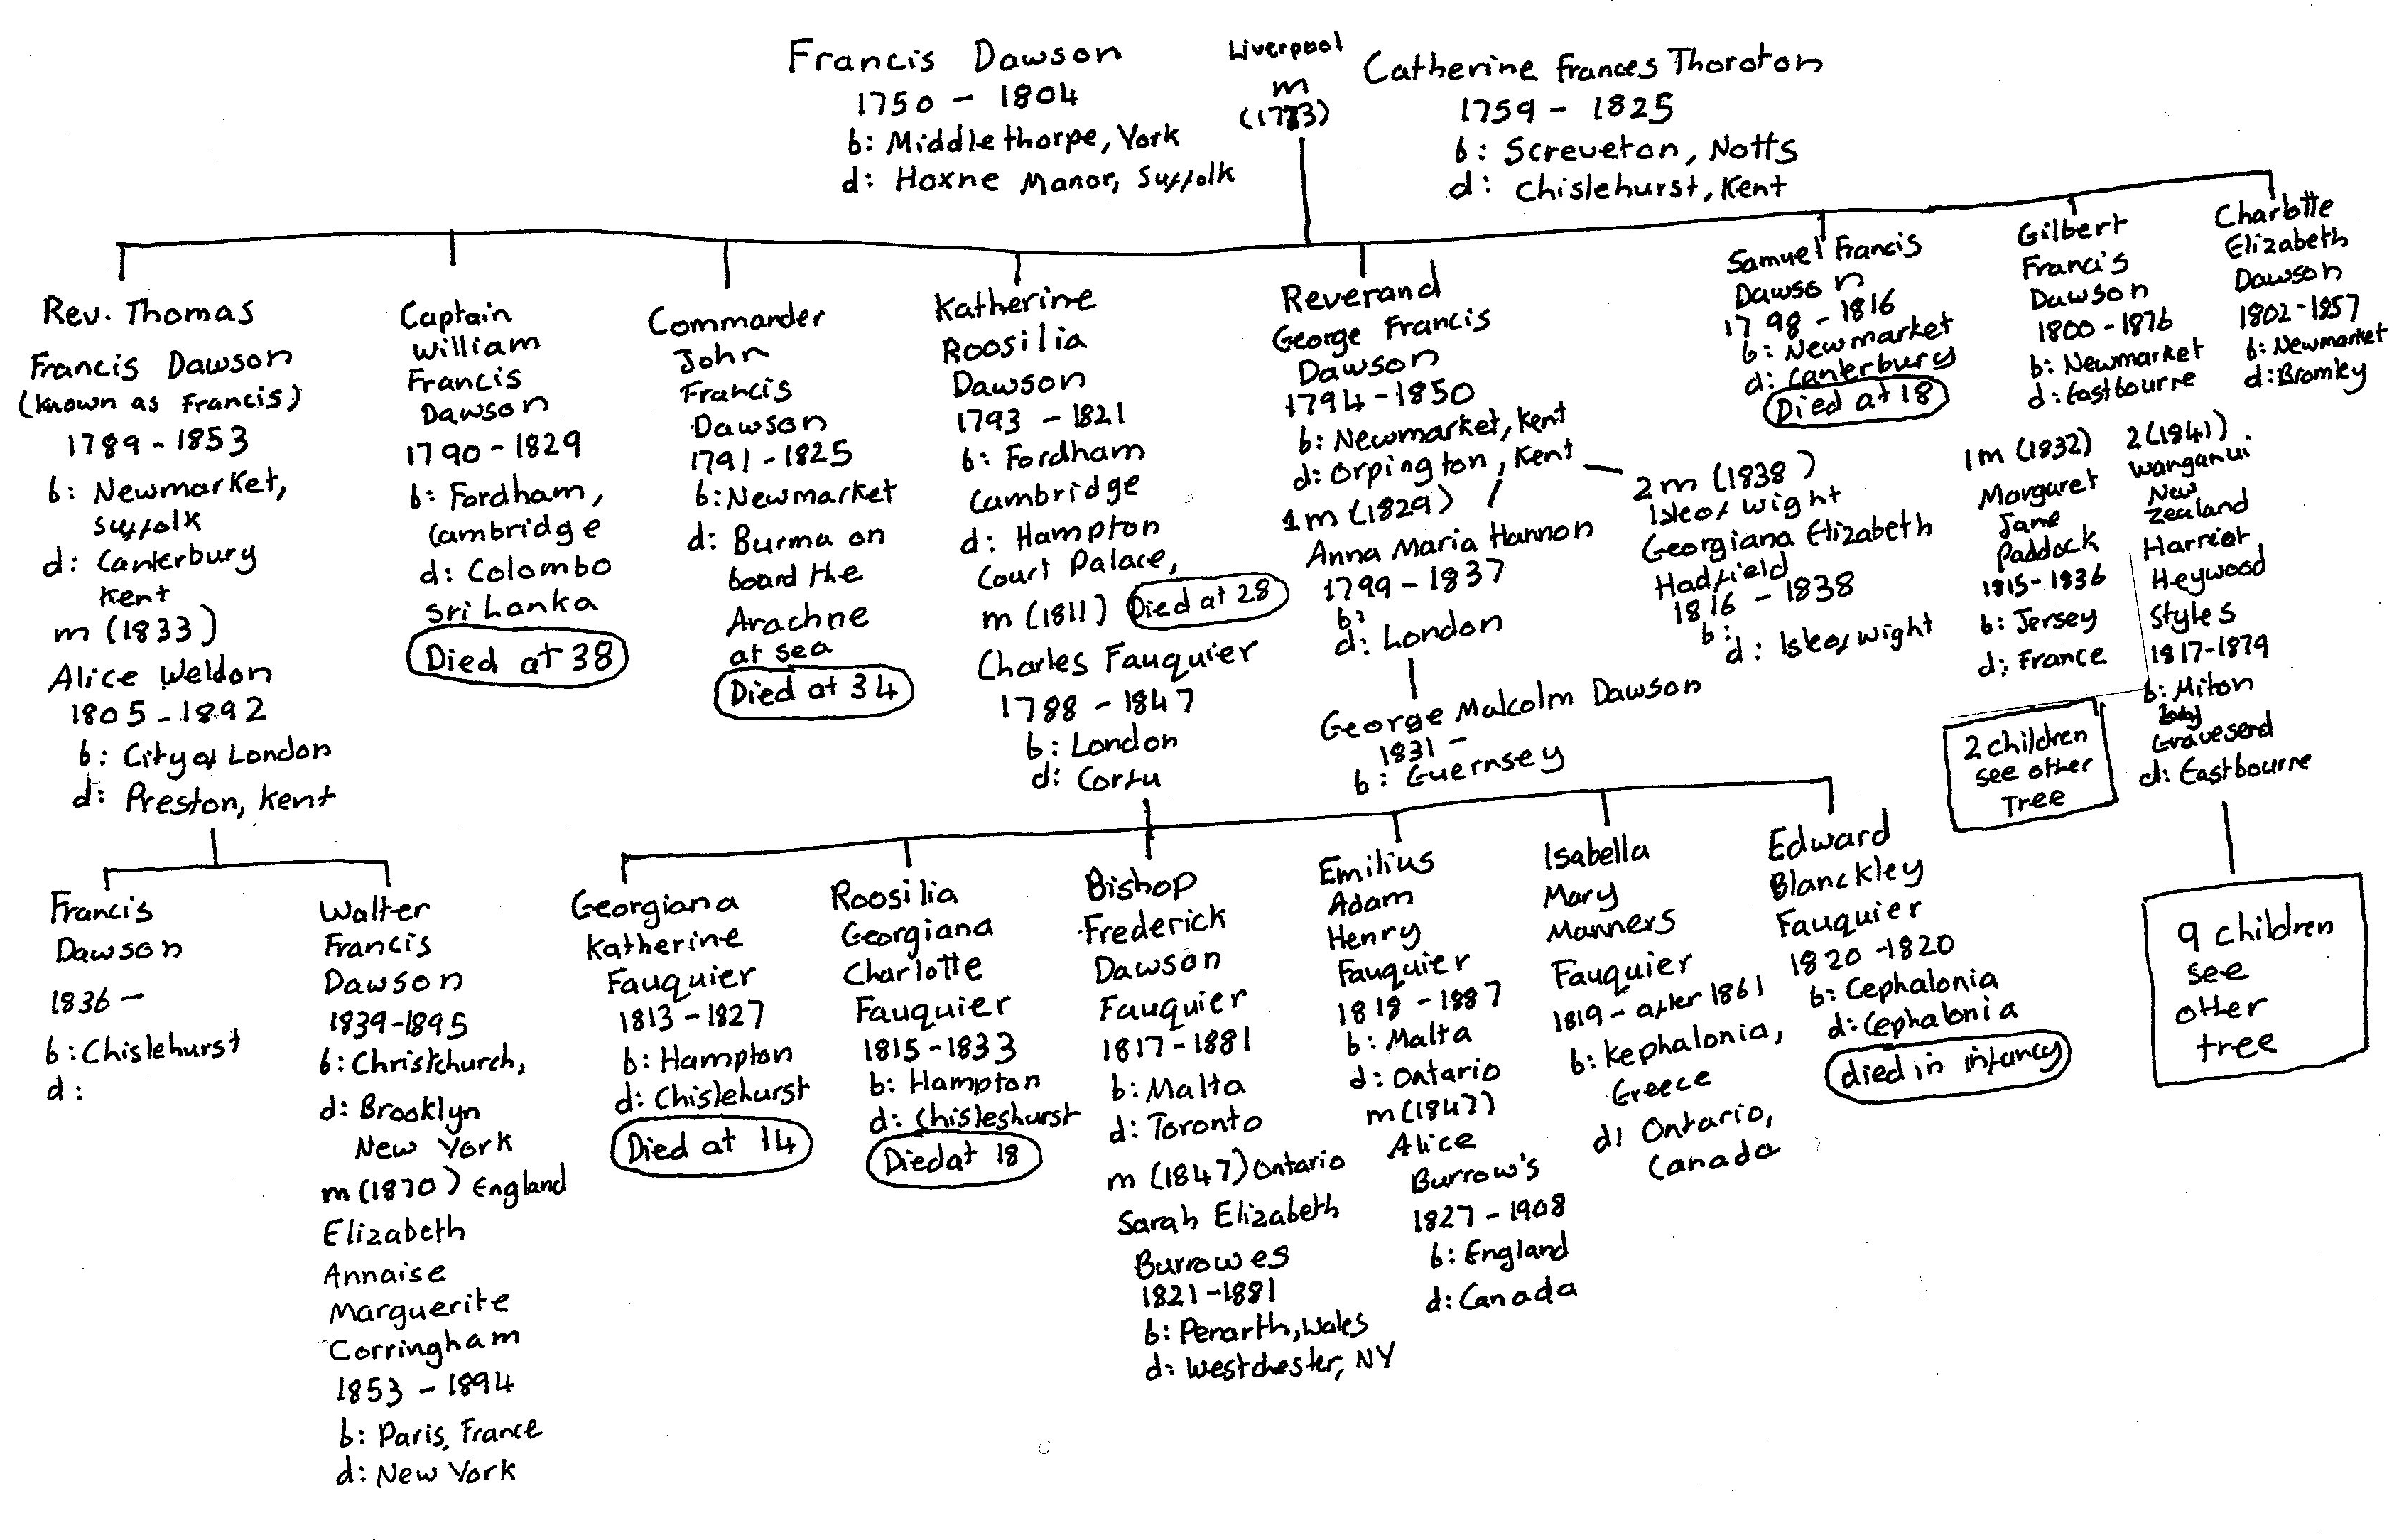 Francis Dawson
1750 - 1804
b: Middlethorpe, York
d: Hoxne Manor, Suffolk
Liverpool
m
Catherine Frances Thoroton
1759 - 1825
b: Screveton, Notts
d: Chislehurst, Kent
Rev. Thomas
Francis Dawson
(known as Francis)
1789 - 1853
b: Newmarket,
Suffolk
d: Canterbury
Kent
m (1833)
Alice Weldon
1805 - 1892
b: City of London
d: Preston, Kent
Captain
William
Francis
Dawson
1790 - 1829
b: Fordham,
Cambridge
d: Colombo
Sri Lanka
Died at 38
Commander
John
Francis
Dawson
1791 - 1825
b: Newmarket
d: Burma on
board the
Arachne
at sea
Died at 34
Katherine
Roosilia
Dawson
1793 - 1821
b: Fordham
Cambridge
d: Hampton
Court Palace,
m (1811) Died at 28
Charles Fauquier
1788 - 1847
b: London
d: Corfu
Reverand
George Francis
Dawson
1794 - 1850
b: Newmarket, Kent
d: Orpington, Kent
1m (1829)
Anna Maria Hannon
1799 - 1837
b:
d: London
2m (1838)
Isle of Wight
Georgiana Elizabeth
Hadfield
1816 - 1838
b:
d: Isle of Wight
George Malcolm Dawson
1831 -
b: Guernsey
Samuel Francis
Dawson
1798 - 1816
b: Newmarket
d: Canterbury
Died at 18
Gilbert
Francis
Dawson
1800 - 1876
b: Newmarket
d: Eastbourne
1m (1832)
Margaret
Jane
Paddock
1815 - 1836
b: Jersey
d: France
2 children
see other
Tree
2 (1841)
Wanganui
New
Zealand
Harriot
Heywood
Styles
1817-1879
b: Milton
Gravesend
d: Eastbourne
9 children
see
other
tree
Charlotte
Elizabeth
Dawson
1802-1857
b: Newmarket
d: Bromley
Francis
Dawson
1836 -
b: Chislehurst
d:
Walter
Francis
Dawson
1839-1895
b: Christchurch,
d: Brooklyn
New York
m (1870) England
Elizabeth
Annaise
Marguerite
Corringham
1853 - 1894
b: Paris, France
d: New York
Georgiana
Katherine
Fauquier
1813 - 1827
b: Hampton
d: Chislehurst
Died at 14
Roosilia
Georgiana
Charlotte
Fauquier
1815 - 1833
b: Hampton
d: Chisleshurst
Died at 18
Bishop
Frederick
Dawson
Fauquier
1817 - 1881
b: Malta
d: Toronto
m (1847) Ontario
Sarah Elizabeth
Burrowes
1821 - 1881
b: Penarth, Wales
d: Westchester, NY
Emilius
Adam
Henry
Fauquier
1818 - 1887
b: Malta
d: Ontario
m (1847)
Alice
Burrow's
1827 - 1908
b: England
d: Canada
Isabella
Mary
Manners
Fauquier
1819 - after 1861
b: Kephalonia,
Greece
d: Ontario,
Canada
Edward
Blanckley
Fauquier
1820 - 1820
b: Cephalonia
d: Cephalonia
died in infancy